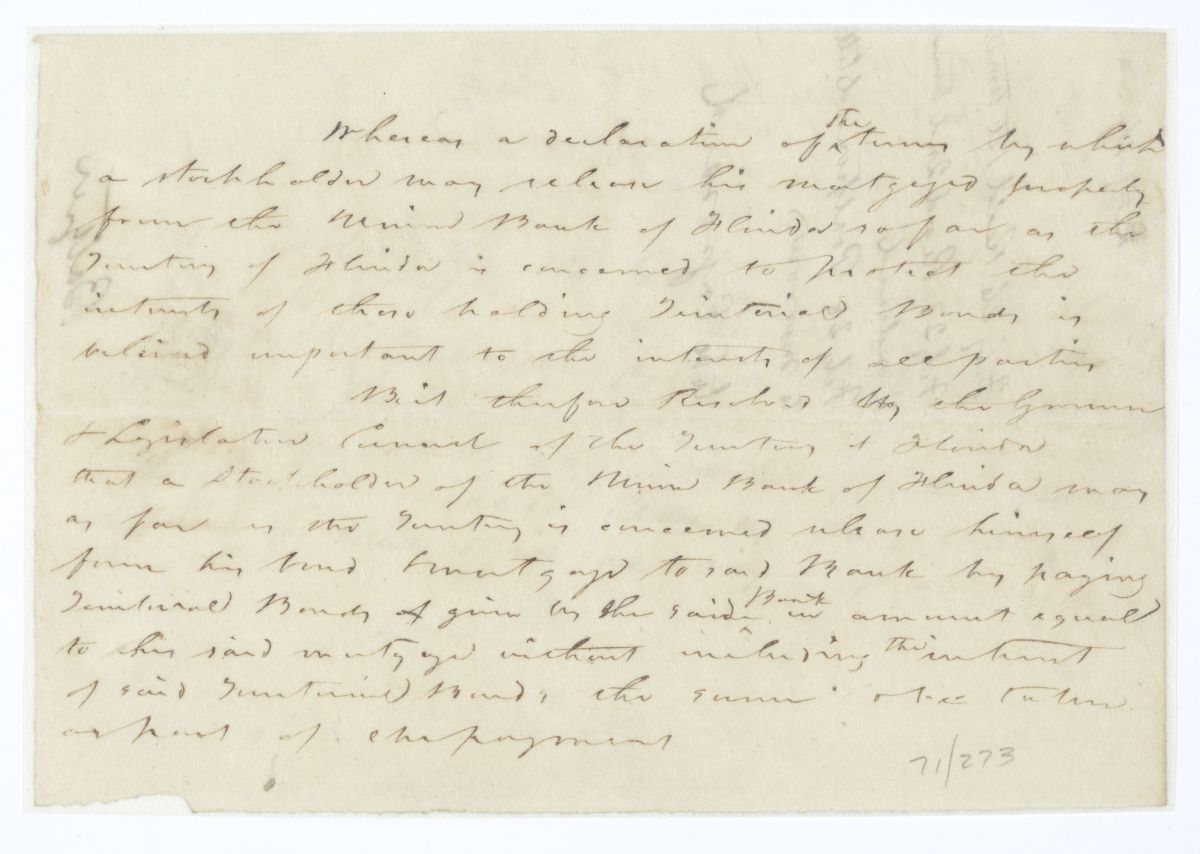 Whereas a declaration of the terms by which
a stockholder may release his mortgaged property
from the Union Bank of Florida so far as the
Territory of Florida is concerned to protect the
interests of those holding Territorial Bonds is
believed important to the interests of all parties
Be it therefore Resolved by the Governor
& Legislative Council of the Territory of Florida
that a Stockholder of the Union Bank of Florida may
as far as the Territory is concerned release himself
from his bond & mortgage to said Bank by paying
Territorial Bonds given by the said Bank in amount equal
to his said mortgage without including the interest
of said Territorial Bonds, the same
as part of the payment
71/273